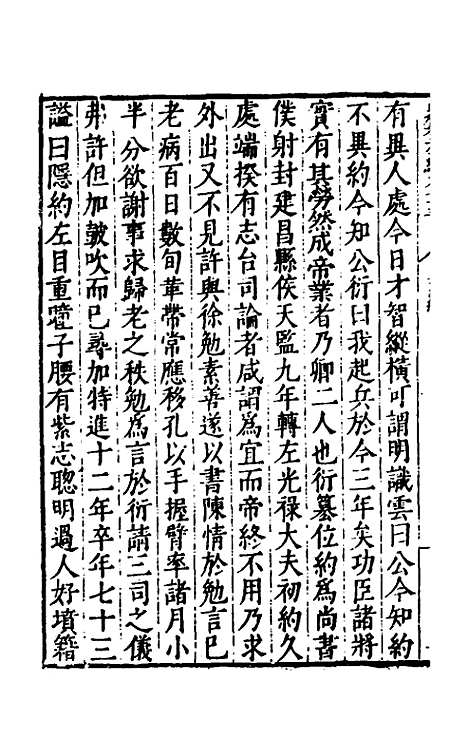 有異人處今日才智縱橫可謂明識雲曰公今知約
不異約今知公衍曰我起兵於今三年矣功臣諸將
實有其勞然成帝業者乃卿二人也衍篡位約為尚書
僕射封建昌縣侯天監九年轉左光祿大夫初約久
處端揆有志台司論者咸謂為宜而帝終不用乃求
外出又不見許與徐勉素善遂以書陳情於勉言已
老病百日數旬革帶常應移孔以手握臂率諸月小
半分欲謝事求歸老之秩勉為言於衍請三司之儀
弗許但加鼓吹而已尋加特進十二年卒年七十三
謚曰隱約左目重瞳子腰有紫志聰明過人好墳籍